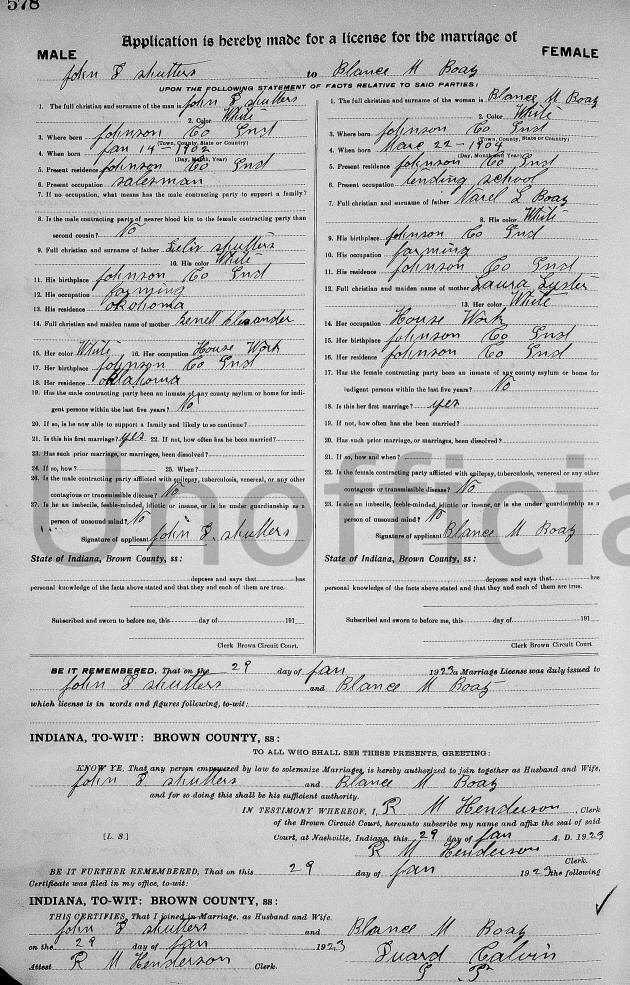 578
Application is hereby made for a license for the marriage of
MALE
FEMALE
John F Shutters to Blance M Boaz
UPON THE FOLLOWING STATEMENT OF FACTS RELATIVE TO SAID PARTIES:
1. The full christian and surname of the man is John F Shutters
2. Color White
3. Where born Johnson Co Ind
(Town, County, State or Country)
4. When born Jan 14-1902
(Day, Month, Year)
5. Present residence Johnson Co Ind
6. Present occupation salesman
7. If no occupation, what means has the male contracting party to support a family?
8. Is the male contracting party of nearer blood kin to the female contracting party than
second cousin? No
9. Full christian and surname of father Felix Shutters
10. His color White
11. His birthplace Johnson Co Ind
12. His occupation farming
13. His residence Oklahoma
14. Full christian and maiden name of mother Alexander
15. Her color White 16. Her occupation House Work
17. Her birthplace Johnson Co Ind
18. Her residence Oklahoma
19. Has the male contracting party been an inmate of any county asylum or home for indi-
gent persons within the last five years? No
20. If so, is he now able to support a family and likely to so continue?
21. Is this his first marriage? yes 22. If not, how often has he been married?
23. Has such prior marriage, or marriages, been dissolved?
24. If so, how? 25. When?
26. Is the male contracting party afflicted with epilepsy, tuberculosis, venereal, or any other
contagious or transmissible disease? No
27. Is he an imbecile, feeble-minded, idiotic or insane, or is he under guardianship as a
person of unsound mind? No
Signature of applicant John F Shutters
State of Indiana, Brown County, ss:
deposes and says that has
personal knowledge of the facts above stated and that they and each of them are true.
Subscribed and sworn to before me, this day of 191
Clerk Brown Circuit Court.
1. The full christian and surname of the woman is Blance M Boaz
2. Color White
3. Where born Johnson Co Ind
(Town, County, State or Country)
4. When born Marc 22-1904
(Day, Month and Year)
5. Present residence Johnson Co Ind
6. Present occupation tending school
7. Full christian and surname of father Varel L Boaz
8. His color White
9. His birthplace Johnson Co Ind
10. His occupation farming
11. His residence Johnson Co Ind
12. Full christian and maiden name of mother Laura Lyster
13. Her color White
14. Her occupation House Work
15. Her birthplace Johnson Co Ind
16. Her residence Johnson Co Ind
17. Has the female contracting party been an inmate of any county asylum or home for
indigent persons within the last five years? No
18. Is this her first marriage? yes
19. If not, how often has she been married?
20. Has such prior marriage, or marriages, been dissolved?
21. If so, how and when?
22. Is the female contracting party afflicted with epilepsy, tuberculosis, venereal or any other
contagious or transmissible disease? No
23. Is she an imbecile, feeble-minded, idiotic or insane, or is she under guardianship as a
person of unsound mind? No
Signature of applicant Blance M Boaz
State of Indiana, Brown County, ss:
deposes and says that has
personal knowledge of the facts above stated and that they and each of them are true.
Subscribed and sworn to before me, this day of 191
Clerk Brown Circuit Court.
Unofficia
BE IT REMEMBERED, That on the 29 day of Jan 1923 a Marriage License was duly issued to
John F Shutters and Blance M Boaz
which license is in words and figures following, to-wit:
INDIANA, TO-WIT: BROWN COUNTY, ss:
TO ALL WHO SHALL SEE THESE PRESENTS, GREETING:
KNOW YE, That any person empowered by law to solemnize Marriages, is hereby authorized to join together as Husband and Wife,
John F Shutters and Blance M Boaz
and for so doing this shall be his sufficient authority.
IN TESTIMONY WHEREOF, I, R M Henderson, Clerk
of the Brown Circuit Court, hereunto subscribe my name and affix the seal of said
[L. S.] Court, at Nashville, Indiana, this 29 day of Jan A. D. 1923
R M Henderson
Clerk.
BE IT FURTHER REMEMBERED, That on this 29 day of Jan 1923 the following
Certificate was filed in my office, to-wit:
INDIANA, TO-WIT: BROWN COUNTY, ss:
THIS CERTIFIES, That I joined in Marriage, as Husband and Wife,
John F Shutters and Blance M Boaz
on the 29 day of Jan 1923 Duard Calvin
Attest R M Henderson Clerk.